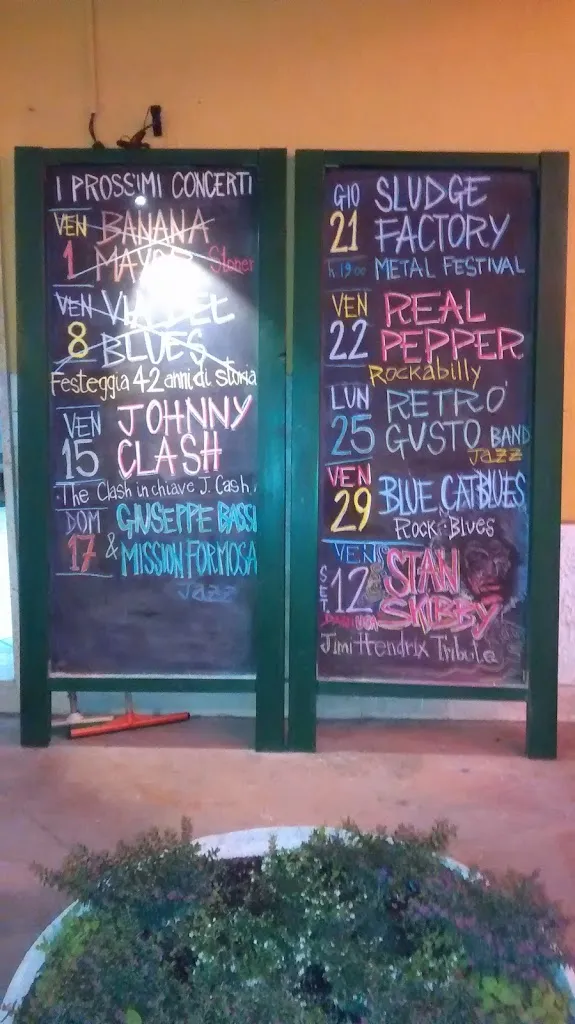 I PROSSIMI CONCERTI
VEN BANANA
1 MAYOR Stoner
VEN VIA DEL
8 BLUES
Festeggia 42 anni di storia
VEN JOHNNY
15 CLASH
The Clash in chiave J. Cash
DOM GIUSEPPE BASSI
17 & MISSION FORMOSA
Jazz
GIO SLUDGE
21 FACTORY
h.19:00 METAL FESTIVAL
VEN REAL
22 PEPPER
Rockabilly
LUN RETRO'
25 GUSTO BAND
Jazz
VEN BLUE CAT BLUES
29 Rock Blues
VEN STAN
SET. 12 SKIBBY
Jimi Hendrix Tribute